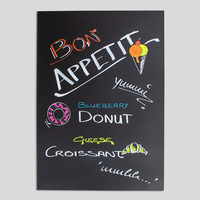 BON
APPETIT
Yummi
BLUEBERRY
DONUT
CHEESE
CROISSANT